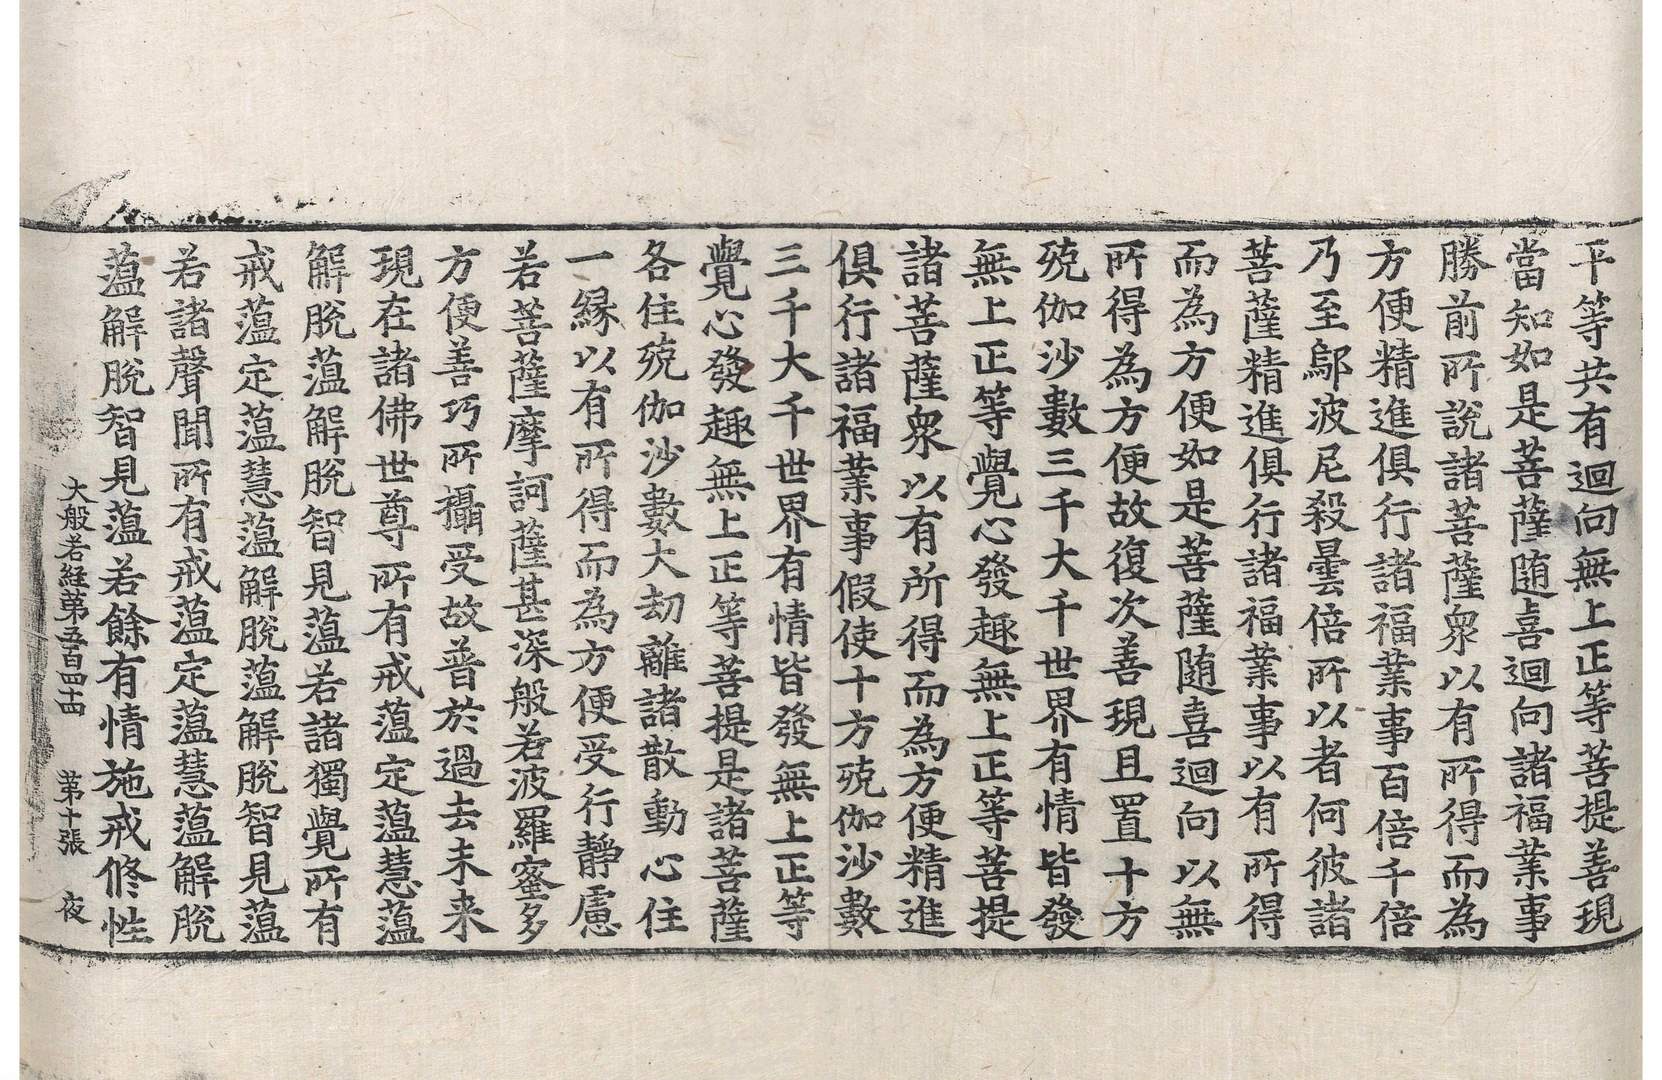 平等共有迴向無上正等菩提善現
當知如是菩薩隨喜迴向諸福業事
勝前所說諸菩薩衆以有所得而為
方便精進俱行諸福業事百倍千倍
乃至鄔波尼殺曇倍所以者何彼諸
菩薩精進俱行諸福業事以有所得
而為方便如是菩薩隨喜迴向以無
所得為方便故復次善現且置十方
殑伽沙數三千大千世界有情皆發
無上正等覺心發趣無上正等菩提
諸菩薩衆以有所得而為方便精進
俱行諸福業事假使十方殑伽沙數
三千大千世界有情皆發無上正等
覺心發趣無上正等菩提是諸菩薩
各住殑伽沙數大劫離諸散動心住
一緣以有所得而為方便受行靜慮
若菩薩摩訶薩甚深般若波羅蜜多
方便善巧所攝受故普於過去未來
現在諸佛世尊所有戒蘊定蘊慧蘊
解脫蘊解脫智見蘊若諸獨覺所有
戒蘊定蘊慧蘊解脫蘊解脫智見蘊
若諸聲聞所有戒蘊定蘊慧蘊解脫
蘊解脫智見蘊若餘有情施戒修性
大般若經第五百四十四 第十張 夜